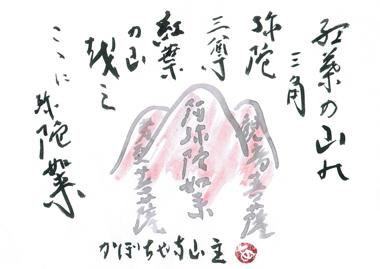 紅葉の山れ
三角
弥陀
三尊
紅葉
の山
越え
ここに弥陀如来
観音菩薩
阿弥陀如来
勢至菩薩
かぼちゃ寺山主